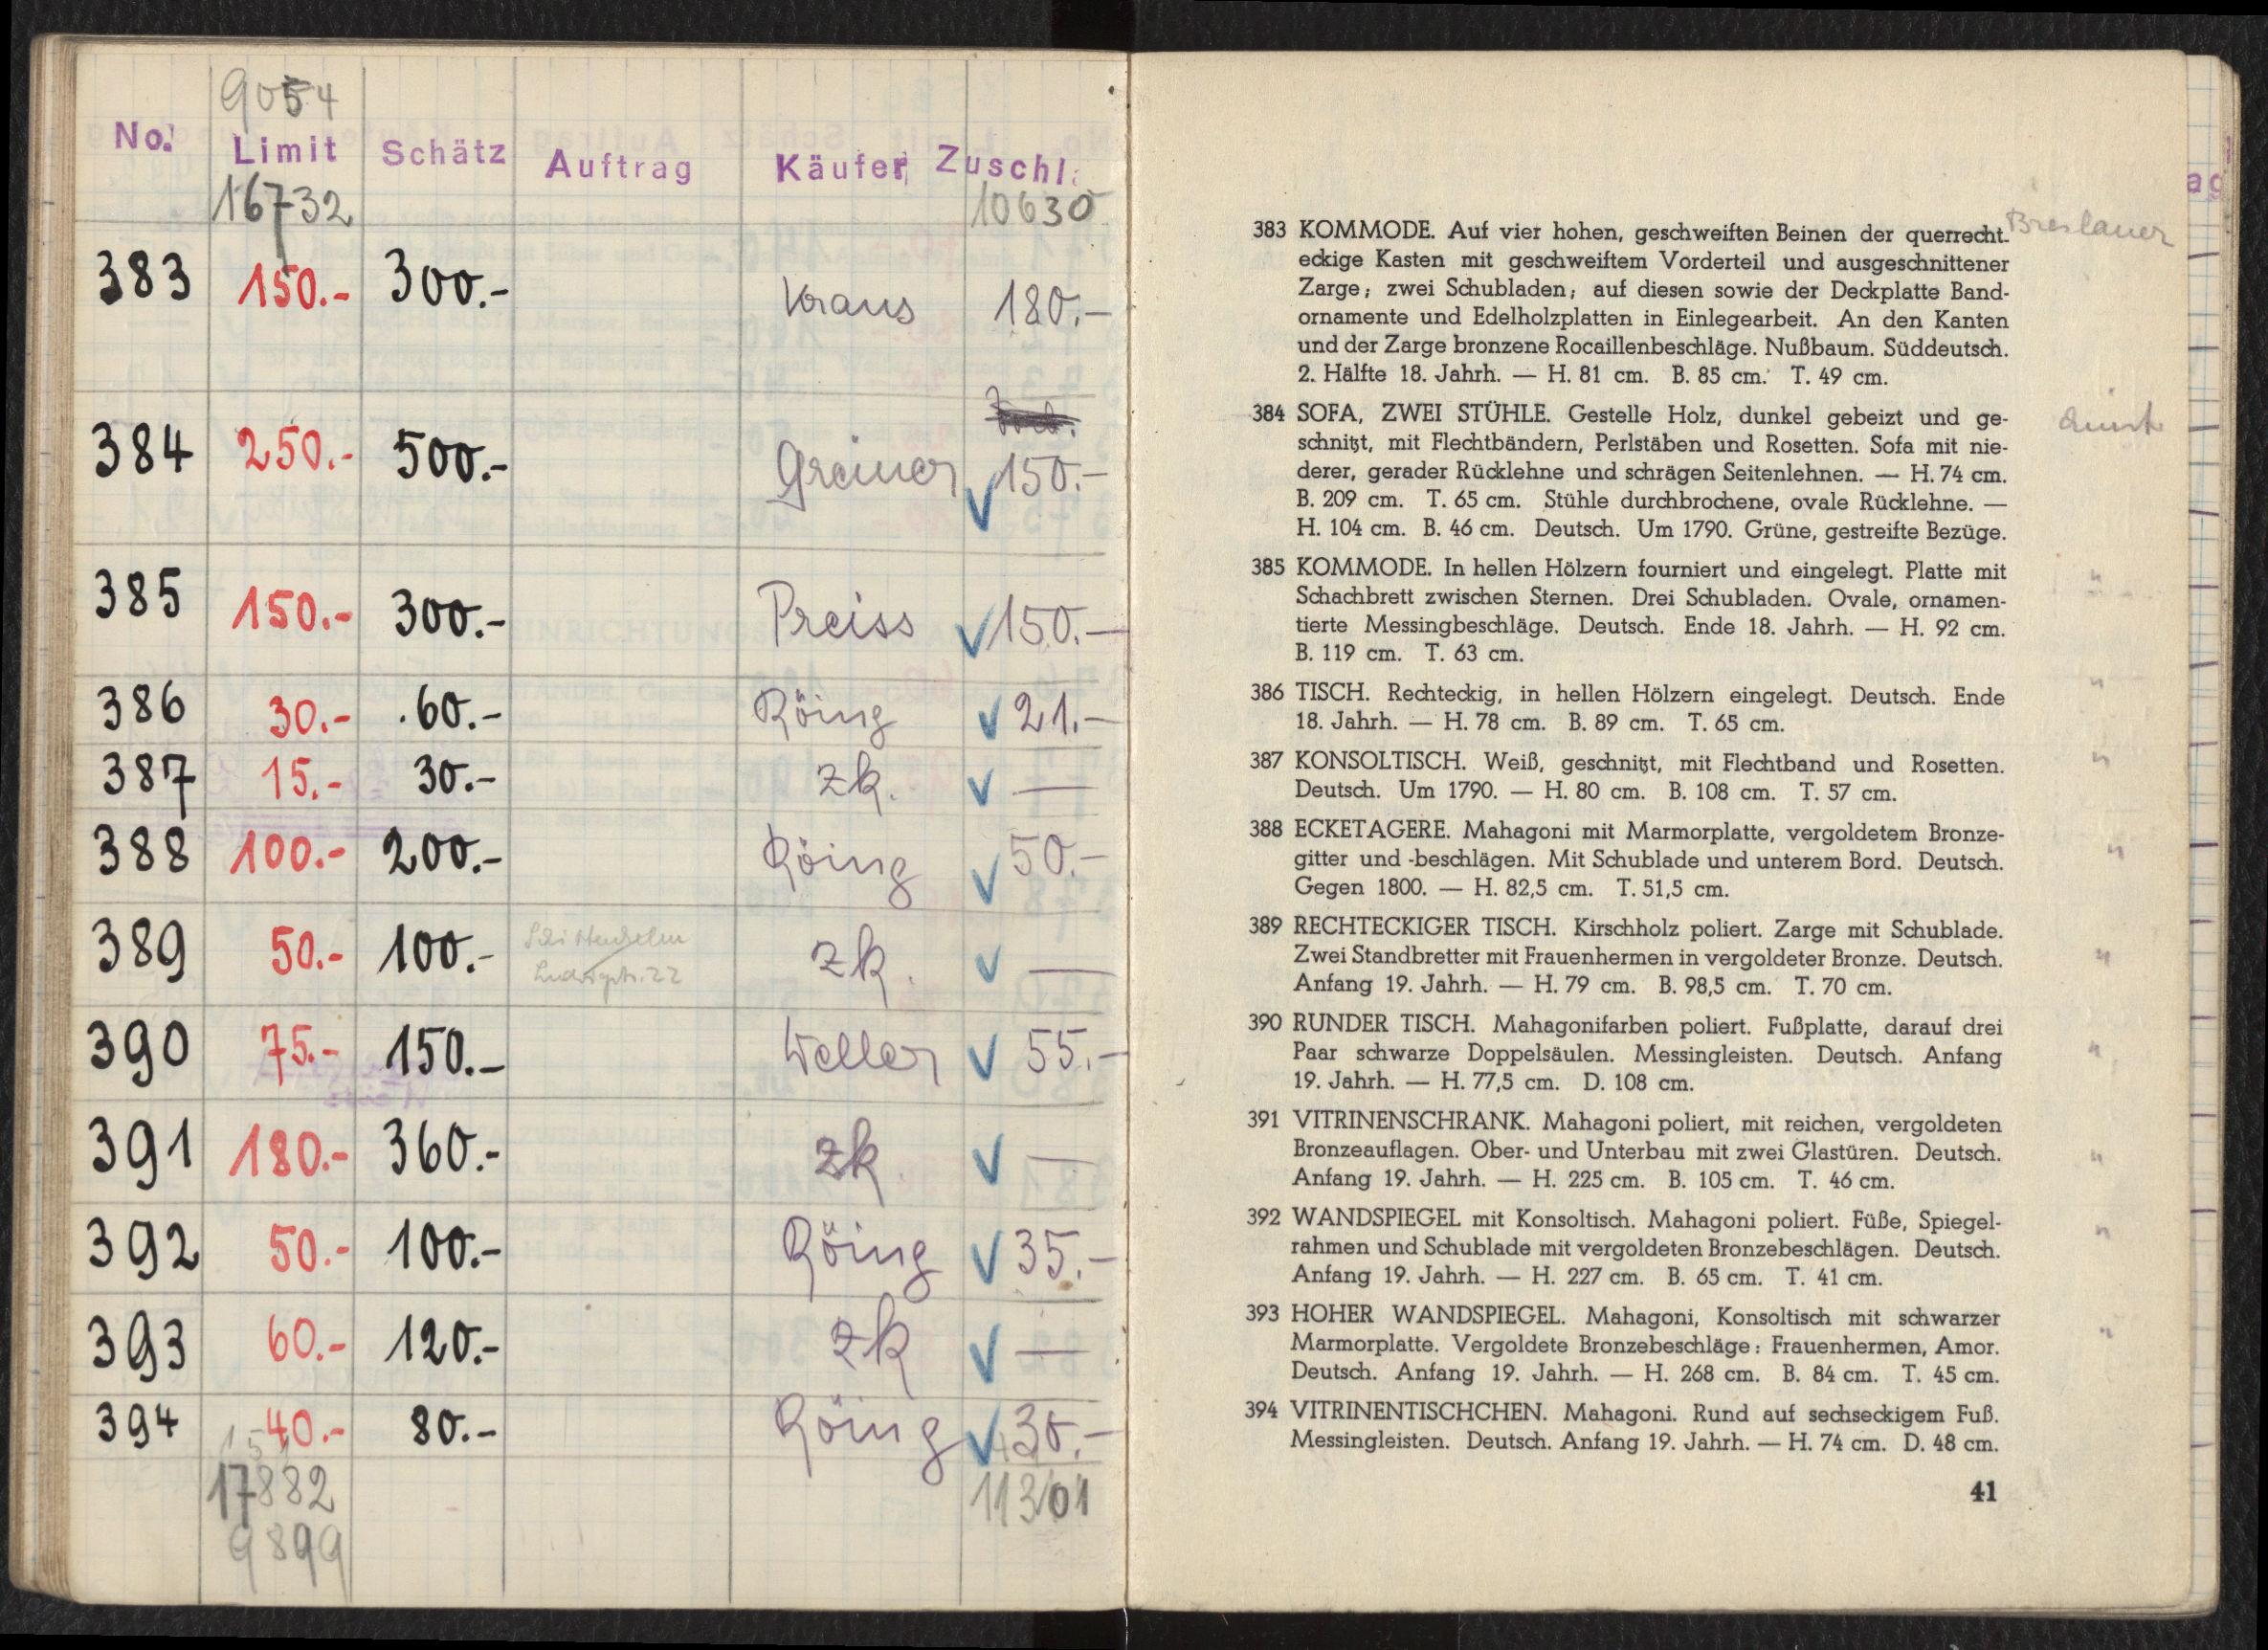 9054
No. Limit Schätz Auftrag Käufer Zuschl.
16732 10630
383 150.- 300.- Kraus 180.-
384 250.- 500.- Greiner 150.-
385 150.- 300.- Preiss 150.-
386 30.- 60.- Röing 21.-
387 15.- 30.- zk. —
388 100.- 200.- Röing 50.-
389 50.- 100.- zk. —
Ludwigstr. 22
390 75.- 150.- Weller 55.-
391 180.- 360.- zk. —
392 50.- 100.- Röing 35.-
393 60.- 120.- zk —
394 40.- 80.- Röing 30.-
17882 11301
9899
383 KOMMODE. Auf vier hohen, geschweiften Beinen der querrecht- Breslauer
eckige Kasten mit geschweiftem Vorderteil und ausgeschnittener
Zarge; zwei Schubladen; auf diesen sowie der Deckplatte Band-
ornamente und Edelholzplatten in Einlegearbeit. An den Kanten
und der Zarge bronzene Rocaillenbeschläge. Nußbaum. Süddeutsch.
2. Hälfte 18. Jahrh. — H. 81 cm. B. 85 cm. T. 49 cm.
384 SOFA, ZWEI STÜHLE. Gestelle Holz, dunkel gebeizt und ge-
schnitzt, mit Flechtbändern, Perlstäben und Rosetten. Sofa mit nie-
derer, gerader Rücklehne und schrägen Seitenlehnen. — H. 74 cm.
B. 209 cm. T. 65 cm. Stühle durchbrochene, ovale Rücklehne. —
H. 104 cm. B. 46 cm. Deutsch. Um 1790. Grüne, gestreifte Bezüge.
385 KOMMODE. In hellen Hölzern fourniert und eingelegt. Platte mit "
Schachbrett zwischen Sternen. Drei Schubladen. Ovale, ornamen-
tierte Messingbeschläge. Deutsch. Ende 18. Jahrh. — H. 92 cm.
B. 119 cm. T. 63 cm.
386 TISCH. Rechteckig, in hellen Hölzern eingelegt. Deutsch. Ende "
18. Jahrh. — H. 78 cm. B. 89 cm. T. 65 cm.
387 KONSOLTISCH. Weiß, geschnitzt, mit Flechtband und Rosetten. "
Deutsch. Um 1790. — H. 80 cm. B. 108 cm. T. 57 cm.
388 ECKETAGERE. Mahagoni mit Marmorplatte, vergoldetem Bronze- "
gitter und -beschlägen. Mit Schublade und unterem Bord. Deutsch.
Gegen 1800. — H. 82,5 cm. T. 51,5 cm.
389 RECHTECKIGER TISCH. Kirschholz poliert. Zarge mit Schublade. "
Zwei Standbretter mit Frauenhermen in vergoldeter Bronze. Deutsch.
Anfang 19. Jahrh. — H. 79 cm. B. 98,5 cm. T. 70 cm.
390 RUNDER TISCH. Mahagonifarben poliert. Fußplatte, darauf drei "
Paar schwarze Doppelsäulen. Messingleisten. Deutsch. Anfang
19. Jahrh. — H. 77,5 cm. D. 108 cm.
391 VITRINENSCHRANK. Mahagoni poliert, mit reichen, vergoldeten "
Bronzeauflagen. Ober- und Unterbau mit zwei Glastüren. Deutsch.
Anfang 19. Jahrh. — H. 225 cm. B. 105 cm. T. 46 cm.
392 WANDSPIEGEL mit Konsoltisch. Mahagoni poliert. Füße, Spiegel- "
rahmen und Schublade mit vergoldeten Bronzebeschlägen. Deutsch.
Anfang 19. Jahrh. — H. 227 cm. B. 65 cm. T. 41 cm.
393 HOHER WANDSPIEGEL. Mahagoni, Konsoltisch mit schwarzer "
Marmorplatte. Vergoldete Bronzebeschläge: Frauenhermen, Amor.
Deutsch. Anfang 19. Jahrh. — H. 268 cm. B. 84 cm. T. 45 cm.
394 VITRINENTISCHCHEN. Mahagoni. Rund auf sechseckigem Fuß.
Messingleisten. Deutsch. Anfang 19. Jahrh. — H. 74 cm. D. 48 cm.
41
ag